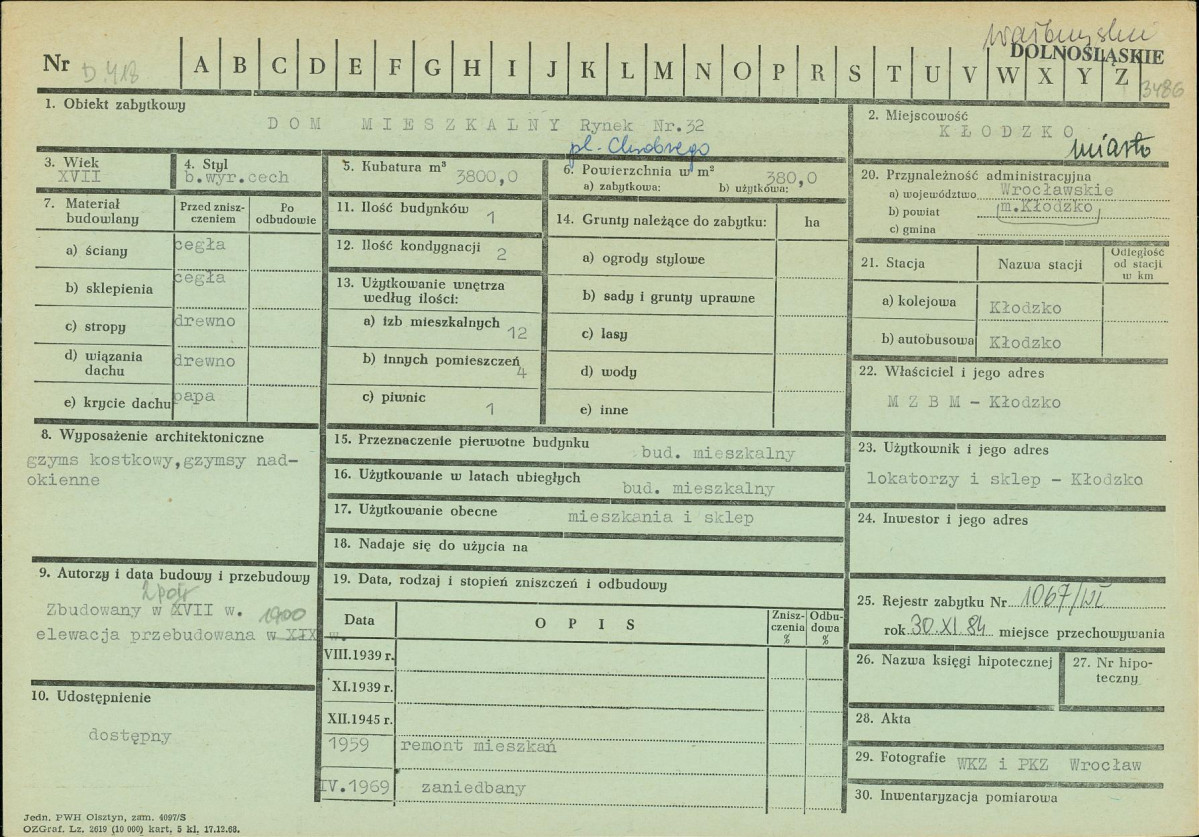 wałbrzyskie
DOLNOŚLĄSKIE
Nr D.418 A B C D E F G H I J K L M N O P R S T U V W X Y Z
3486
1. Obiekt zabytkowy
DOM MIESZKALNY Rynek Nr.32
pl. Chrobrego
2. Miejscowość
KŁODZKO
miasto
3. Wiek
XVII
4. Styl
b.wyr.cech
5. Kubatura m³
3800,0
6. Powierzchnia w m² 380,0
a) zabytkowa: b) użytkowa:
7. Materiał budowlany
Przed zniszczeniem
Po odbudowie
a) ściany cegła
b) sklepienia cegła
c) stropy drewno
d) wiązania dachu drewno
e) krycie dachu papa
8. Wyposażenie architektoniczne
gzyms kostkowy,gzymsy nad-
okienne
9. Autorzy i data budowy i przebudowy
2 poł
Zbudowany w XVII w.
1900
elewacja przebudowana w XIX w.
10. Udostępnienie
dostępny
11. Ilość budynków 1
12. Ilość kondygnacji 2
13. Użytkowanie wnętrza
według ilości:
a) izb mieszkalnych 12
b) innych pomieszczeń 4
c) piwnic 1
14. Grunty należące do zabytku: ha
a) ogrody stylowe
b) sady i grunty uprawne
c) lasy
d) wody
e) inne
15. Przeznaczenie pierwotne budynku
bud. mieszkalny
16. Użytkowanie w latach ubiegłych
bud. mieszkalny
17. Użytkowanie obecne mieszkania i sklep
18. Nadaje się do użycia na
19. Data, rodzaj i stopień zniszczeń i odbudowy
Data OPIS Zniszczenia % Odbudowa %
VIII.1939 r.
XI.1939 r.
XII.1945 r.
1959 remont mieszkań
IV.1969 zaniedbany
20. Przynależność administracyjna
a) województwo Wrocławskie
b) powiat m.Kłodzko
c) gmina
21. Stacja Nazwa stacji Odległość od stacji w km
a) kolejowa Kłodzko
b) autobusowa Kłodzko
22. Właściciel i jego adres
M Z B M - Kłodzko
23. Użytkownik i jego adres
lokatorzy i sklep - Kłodzko
24. Inwestor i jego adres
25. Rejestr zabytku Nr 1067/Wł
rok 30.XI.84 miejsce przechowywania
26. Nazwa księgi hipotecznej
27. Nr hipo-
teczny
28. Akta
29. Fotografie WKZ i PKZ Wrocław
30. Inwentaryzacja pomiarowa
Jedn. PWH Olsztyn, zam. 4097/S
OZGraf. Lz. 2619 (10 000) kart, 5 kl. 17.12.68.